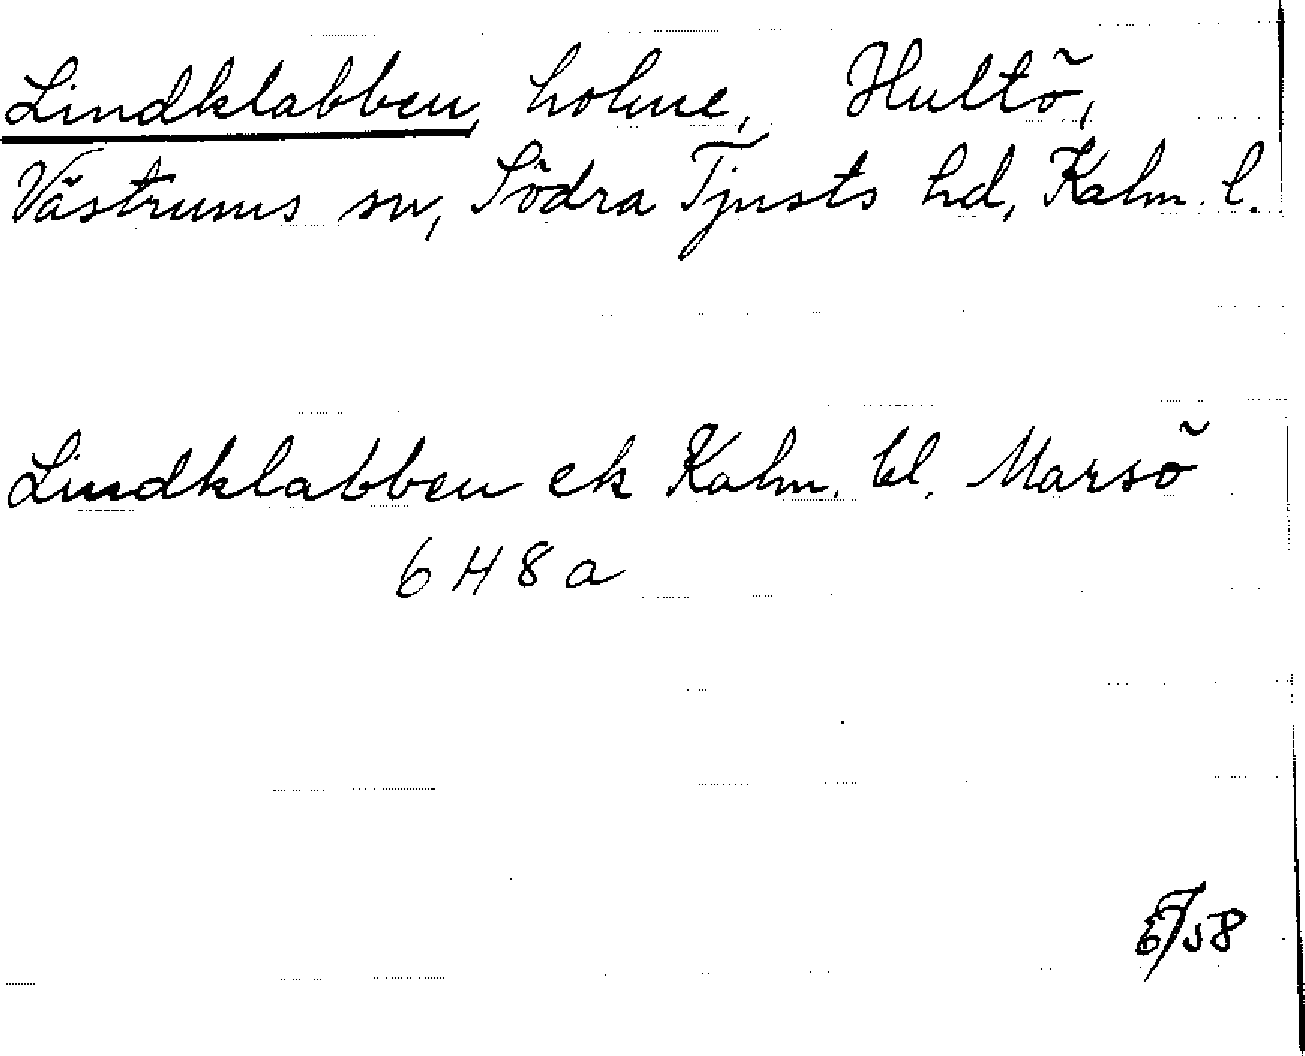 Lindklabben, holme, Hultö,
Västrums sn, Södra Tjusts hd, Kalm. l.
Lindklabben ek Kalm. bl. Marsö
6 H 8 a
58